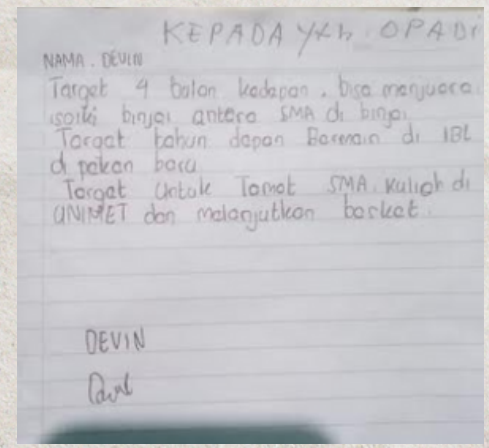 KEPADA Yth. OPADI
NAMA. DEVIN
Target 4 bolan kedepan. bisa menjuara
isoiki binjai antara SMA di binjai
Target tahun depan Bermain di IBL
di pekan baru
Target Untuk Tamat SMA. Kuliah di
UNIMET dan melanjutkan basket.
DEVIN